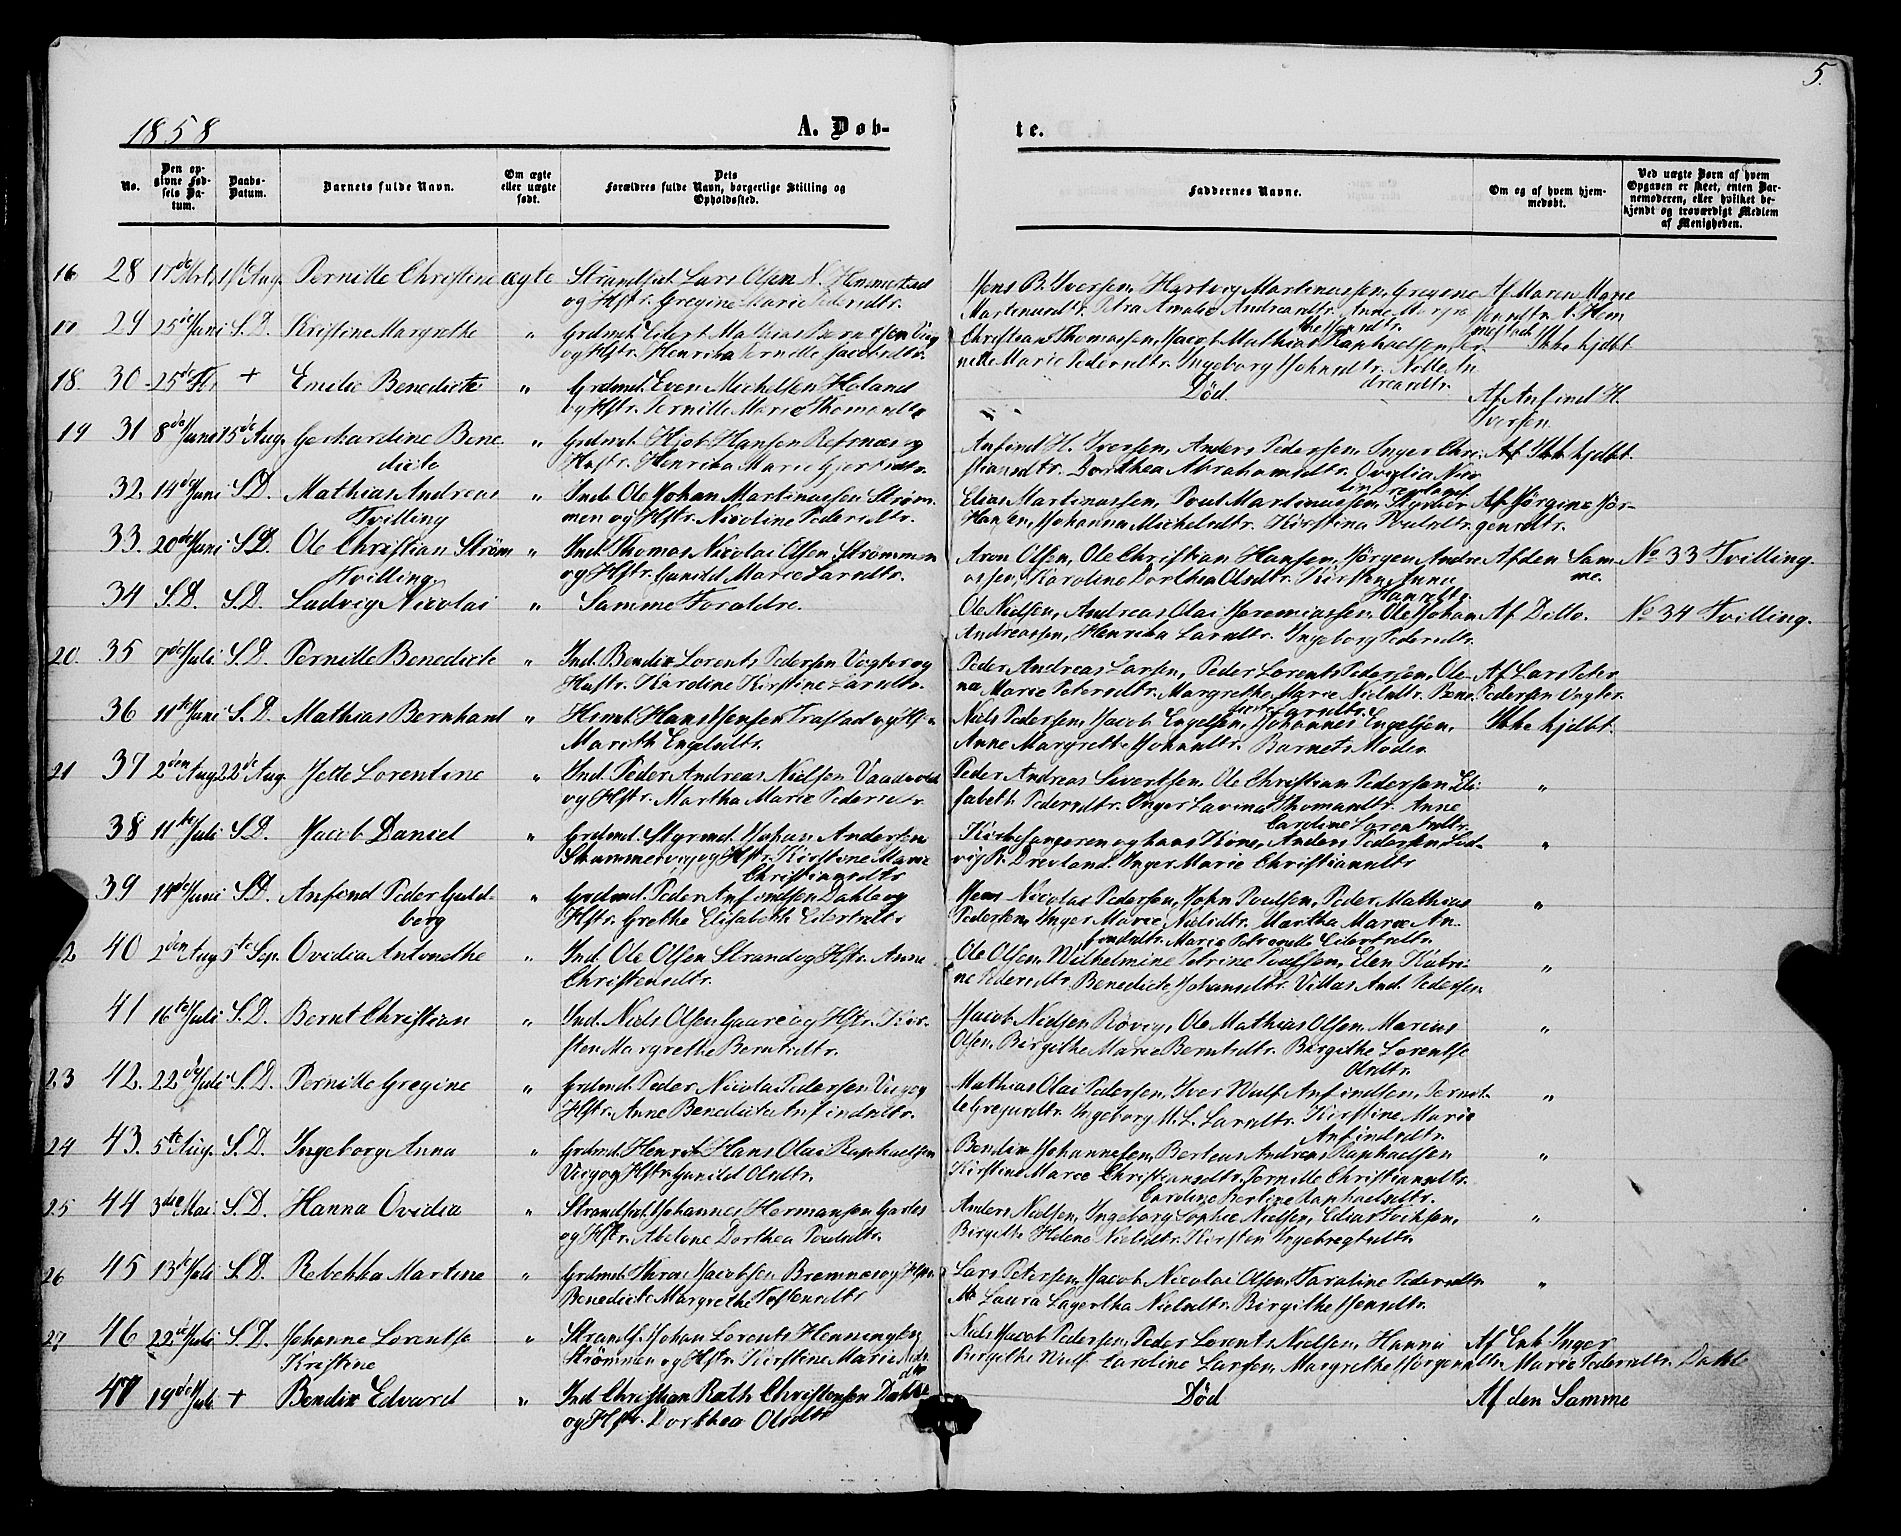 5.
1858
A. Døb-
te.
No.
Den op-
givne Fød-
sels Da-
tum.
Daabs-
Datum.
Barnets fulde Navn.
Om ægte
eller uægte
født.
Dets
Forældres fulde Navn, borgerlige Stilling og
Opholdssted.
Faddernes Navne.
Om og af hvem hjem-
medøbt.
Ved uægte Børn af hvem
Opgaven er skeet, enten Bar-
nemoderen, eller hvilket be-
kjendt og troværdigt Medlem
af Menigheden.
16 28 17de Mrts 1ste Aug. Pernille Christine ægte Strands. Lars Olsen N. Hemmestad
og Hstr. Gregine Marie Pedersdtr.
Jens B. Iversen, Hartvig Martinussen, Gregine
Martinusdtr. Petra Amalie Andreasdtr. Anne
Af Maren Marie
Jensdtr. Hem
mestad
29 25de Juni S.D. Kristine Margrethe " Grdmd. Eilert Mathias Vig
og Hstr. Henrika Pernille Jacobsdtr.
Christian Thomassen, Jacob Mathias Raphaelsen, Per-
nille Marie Pedersdtr. Ingeborg Johnsdtr. Nille An
dreasdtr.
Ikke hjdbt
18. 30 25de + Emilie Benedicte " Grdmd. Even Michelsen Holand
og Hstr. Pernille Marie Thomasdtr
Død.
Af Anfind H.
Iversen.
19 31 8de Juni 15de Aug. Gerhardine Bene
dicte
" Grdmd. Hjob Hansen Refsnæs og
Hustr. Henrika Marie
Anfind H. Iversen, Anders Pedersen, Inger Chri-
stiansdtr. Dorthea Abrahamsdtr. Ovidia
Af Ikke hjdbt.
32. 14de Juni S.D. Mathias Andreas
Tvilling
" Inds. Ole Johan Martinussen Strøm-
men og Hstr. Nicoline Pedersdtr.
Elias Martinussen, Poul Martinussen,
Hansen, Johanna Michelsdtr. Kirstina Poulsdtr.
Af Jørgine Jør-
gensdtr.
33. 20de Juni S.D. Ole Christian Strøm
Tvilling
" Inds. Thomas Nicolai Olsen Strømmen
og Hstr. Gunild Marie Larsdtr.
Aron Olsen, Ole Christian Hansen, Jørgen Andre
assen, Karoline Dorthea Olsdtr. Kirsten Anna
Hansdtr.
Af den Sam-
me.
No 33 Tvilling.
34 S.D. S.D. Ludvig Nicolai " Samme Forældre.
Ole Nielsen, Andreas Olai Jeremiassen, Ole Johan
Andreassen, Henrika Larsdtr. Ingeborg Pedersdtr.
Af Ditto.
No 34 Tvilling.
20. 35 7de Juli S.D. Pernille Benedicte " Ind. Bendix Lorents Pedersen Vogter og
Hustr. Karoline Kirstine Larsdtr.
Peder Andreas Larsen, Peder Lorents Pedersen, Ole-
na Marie Petersdtr. Margrethe Marie Nielsdtr. Bene
Larsdtr.
Af Lars Peter
Pedersen Vogter.
36 11te Juni S.D. Mathias Bernhard " Hans Jensen Trastad og
Marith Engelsdtr.
Niels Pedersen, Jacob Engelsen, Johannes Engelsen,
Anne Margrethe Johnsdtr. Barnets Moder.
Ikke hjdbt.
21 37 2den Aug 22de Aug. Jette Lorentine " Ind. Peder Andreas Nielsen
og Hstr. Martha Marie Pedersdtr.
Peder Andreas Sivertsen, Ole Christian Pedersen, Eli-
sabeth Pedersdtr. Inger Lavina Thomasdtr. Anne
Caroline Lorentsdtr.
"
38 11te Juli S.D. Jacob Daniel " Grdmd. Styrmd. Johan Andersen
og Hstr. Kirstine Marie
Christiansdtr
Kirkesangeren og hans Kone, Anders Pedersen, Lud-
vig P. Drevland. Inger Marie Christiansdtr
"
39 14de Juni S.D. Anfind Peder Guld-
berg
" Grdmd. Peder Anfindsen Dahle og
Hstr. Grethe Elisabeth Eilertsdtr
Jens Nicolai Pedersen, John Poulsen, Peder Mathias
Pedersen, Inger Marie Nielsdtr. Martha Marie An-
findsdtr. Marie Petronelle Eilertsdtr.
"
22 40 2den Aug 5te Sep. Ovidia Antonethe " Ind. Ole Olsen Strand og Hstr. Anne
Christensdtr.
Ole Olsen, Wilhelmine Petrine Poulsen, Elen Katri-
ne Pedersdtr. Benedicte Johansdtr. Villas And. Pedersen
"
41 16te Juli S.D. Bernt Christian " Ind. Niels Olsen Gaare og Hstr. Kir-
sten Margrethe Berntsdtr.
Jacob Nielsen Røvig, Ole Mathias Olsen, Marius
Olsen, Birgithe Marie Berntsdtr. Birgithe Lorentse
Olsdtr.
"
23 42. 22de Juli S.D. Pernille Gregine " Grdmd. Peder Nicolai Pedersen Vig og
Hstr. Anne Benedicte Anfindsdtr.
Mathias Olai Pedersen, Iver Wulf Anfindsen, Pernil-
le Gregersdtr. Ingeborg M. L. Larsdtr. Kirstine Marie
Anfindsdtr.
"
24 43. 5te Aug. S.D. Ingeborg Anna " Grdmd. Henrik Hans Olai Raphaelsen
Vig og Hstr. Gunild Olsdtr.
Bendix Johannesen, Berteus Andreas Raphaelsen
Kirstine Marie Christiansdtr. Pernille Christiansdtr.
Caroline Bertine Raphaelsdtr.
"
25 44 3die Mai S.D. Hanna Ovidia " Strands. Johannes Hermansen
og Hstr. Abelone Dorthea Poulsdtr.
Anders Nielsen, Ingeborg Sophie Nielsen,
Birgithe Helene Nielsdtr. Kirsten Ingebregtsdtr.
"
26 45 13de Juli S.D. Rebekka Martine " Grdmd. Jacobsen Bremnes og
Benedicte Margrethe
Lars Petersen, Jacob Nicolai Olsen, Pedersdtr
Laura Lagertha Nielsdtr. Birgithe Jensdtr.
"
27 46 22de Juli S.D. Johanne Lorentse
Kristine
" Strands. Johan Lorents Henningsen
Strømmen og Hstr. Kirstine Marie
Niels Jacob Pedersen, Peder Lorents Nielsen, Hanna
Birgithe Wulf. Caroline Larsen, Margrethe Jørgensdtr.
Af Enk. Inger
Marie Pedersdtr. Dahle
47 19de Juli + Bendix Edvard " Ind. Christian Rath Christensen Dahle
og Hstr. Dorthea Olsdtr
Død
Af den Samme